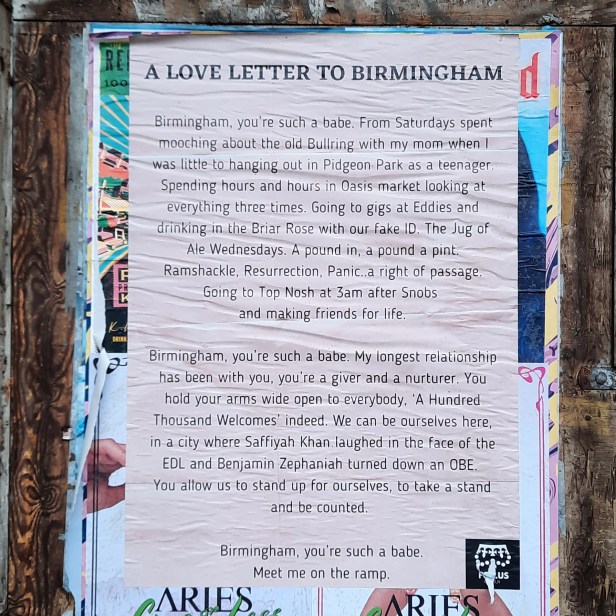 A LOVE LETTER TO BIRMINGHAM
Birmingham, you're such a babe. From Saturdays spent
mooching about the old Bullring with my mom when I
was little to hanging out in Pidgeon Park as a teenager.
Spending hours and hours in Oasis market looking at
everything three times. Going to gigs at Eddies and
drinking in the Briar Rose with our fake ID. The Jug of
Ale Wednesdays. A pound in, a pound a pint.
Ramshackle, Resurrection, Panic..a right of passage.
Going to Top Nosh at 3am after Snobs
and making friends for life.
Birmingham, you're such a babe. My longest relationship
has been with you, you're a giver and a nurturer. You
hold your arms wide open to everybody, 'A Hundred
Thousand Welcomes' indeed. We can be ourselves here,
in a city where Saffiyah Khan laughed in the face of the
EDL and Benjamin Zephaniah turned down an OBE.
You allow us to stand up for ourselves, to take a stand
and be counted.
Birmingham, you're such a babe.
Meet me on the ramp.
ARIES
ARIES